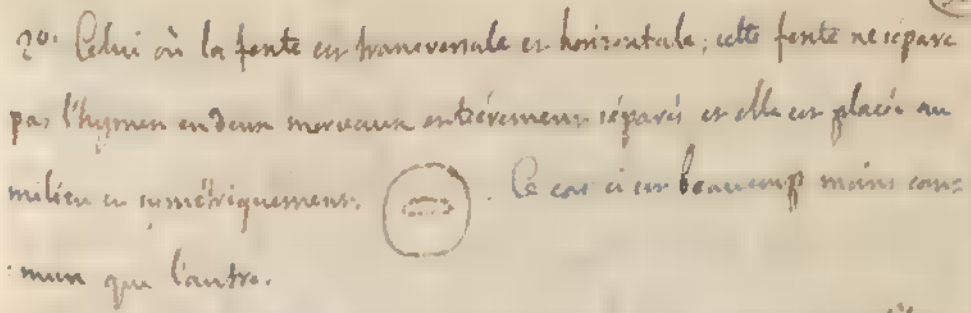 2º. Celui où la fente est transversale et horizontale; cette fente ne sépare
pas l'hymen en deux morceaux entièrement séparés et elle est placée au
milieu et symétriquement. . Ce cas ci est beaucoup moins com=
:mun que l'autre.